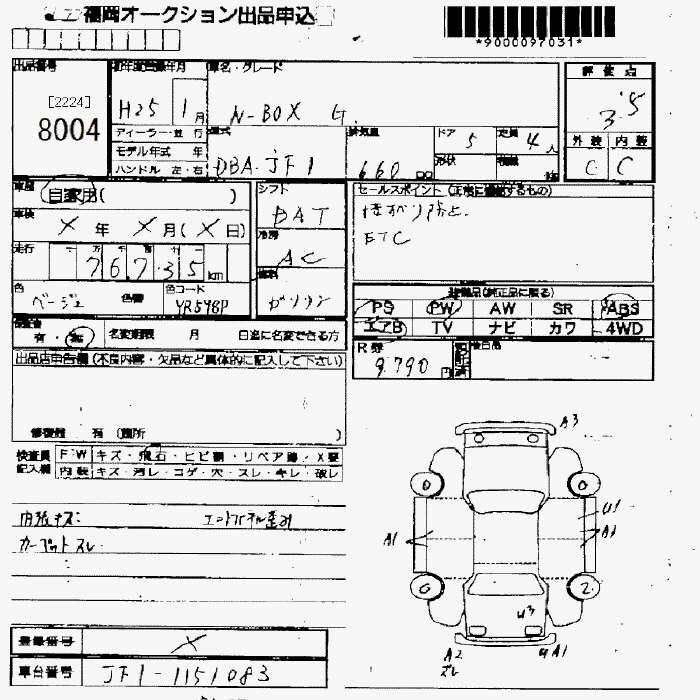 福岡オークション出品申込
*9000097031*
出品番号
[2224]
8004
初年度登録年月
H25 1月
車名・グレード
N-BOX G
評価点
3.5
外装 内装
C C
ディーラー・並行
モデル年式 年
ハンドル 左・右
型式
DBA-JF1
排気量
660 cc
ドア
5
形状
定員
4人
積載
kg
車歴
自家用( )
車検
X 年 X 月(X日)
走行
76,735 km
色
ベージュ
色替
色コード
YR578P
シフト
DAT
冷房
AC
燃料
ガソリン
セールスポイント(正常に機能するもの)
横すべり防止
ETC
装備品(純正品に限る)
PS PW AW SR ABS
エアB TV ナビ カワ 4WD
有・無
名変期限 月 日迄に名変できる方
R券
9,790 円
後日品
出品店申告欄(不良内容・欠品など具体的に記入して下さい)
修復歴 有(箇所 )
検査員記入欄
F・W キズ・飛石・ヒビ割・リペア跡・X要
内装 キズ・汚レ・コゲ・穴・スレ・キレ・破レ
内張キズ
エンドパネル歪み
カーペットスレ
A3
U1
A1
A1
U3
A2
スレ
U A1
0
0
0
2
登録番号
X
車台番号
JF1-1151083